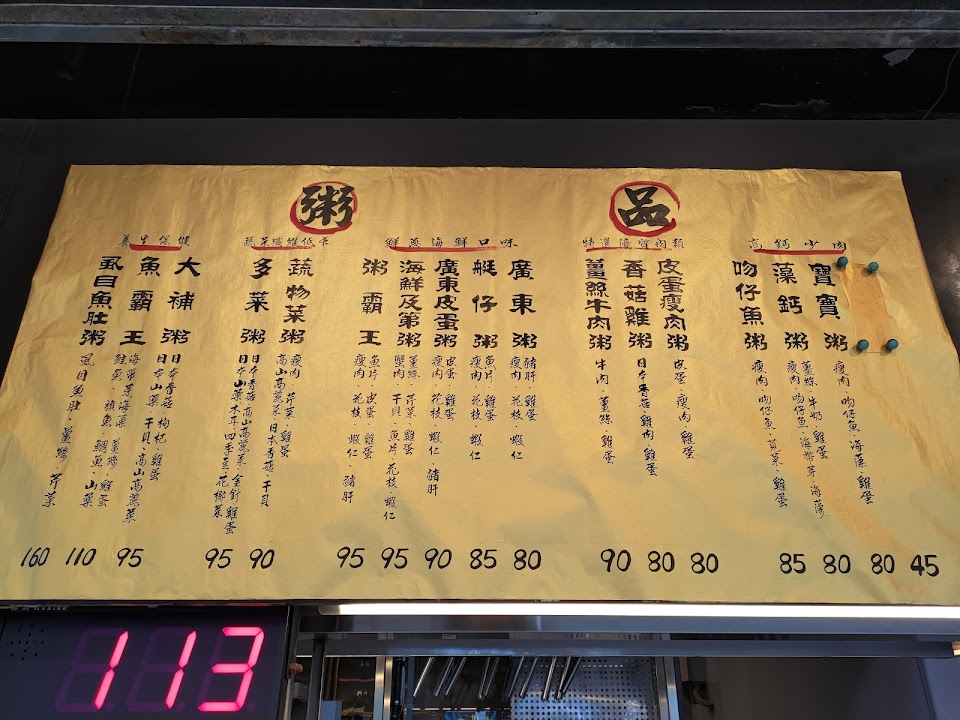 粥品
高鈣少肉
寶寶粥
瘦肉 吻仔魚 海藻 雞蛋
藻鈣粥
薑絲 牛奶 雞蛋
瘦肉 吻仔魚 海帶芽 海藻
吻仔魚粥
瘦肉 吻仔魚 莧菜 雞蛋
45
80
80
85
皮蛋瘦肉粥
皮蛋 瘦肉 雞蛋
香菇雞粥
日本香菇 雞肉 雞蛋
薑絲牛肉粥
牛肉 薑絲 雞蛋
80
80
90
海鮮口味
廣東粥
豬肝 雞蛋
瘦肉 花枝 蝦仁
艇仔粥
魚片 雞蛋
瘦肉 花枝 蝦仁
廣東皮蛋粥
皮蛋 雞蛋
瘦肉 花枝 蝦仁 豬肝
海鮮及第粥
薑絲 芹菜 雞蛋
蟹肉 干貝 魚片 花枝 蝦仁
粥霸王
魚片 皮蛋 雞蛋
瘦肉 花枝 蝦仁 豬肝
80
85
90
95
95
蔬菜纖維低卡
蔬物菜粥
瘦肉 芹菜 雞蛋
高山高麗菜 日本香菇 干貝
多菜粥
日本香菇 高山高麗菜 金針 雞蛋
日本山藥 木耳 四季豆 花椰菜
90
95
養生保健
大補粥
日本香菇 枸杞 雞蛋
日本山藥 干貝 高山高麗菜
魚霸王
海帶菜 海藻 薑絲 雞蛋
鮭魚 旗魚 鯛魚 山藥
虱目魚肚粥
虱目魚肚 薑絲 芹菜
95
110
160
113